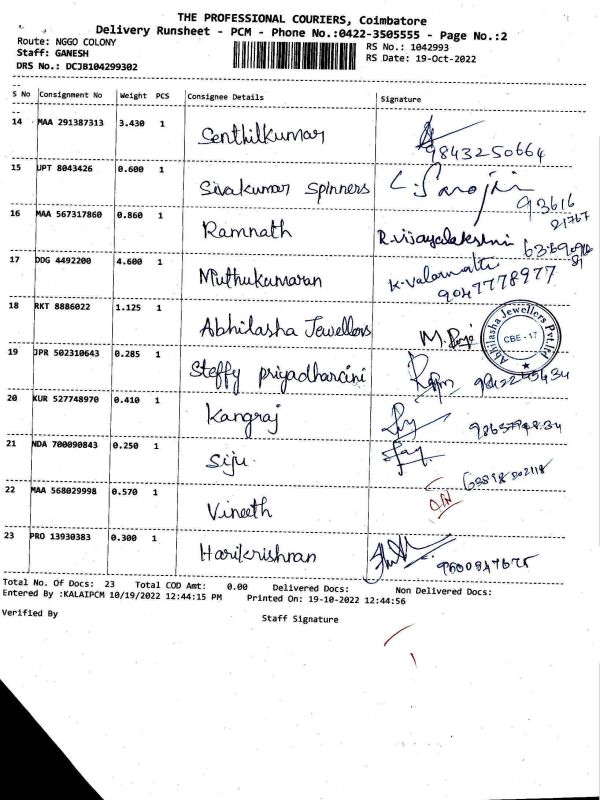 THE PROFESSIONAL COURIERS, Coimbatore
Delivery Runsheet - PCM - Phone No.:0422-3505555 - Page No.:2
Route: NGGO COLONY
RS No.: 1042993
Staff: GANESH
RS Date: 19-Oct-2022
DRS No.: DCJB104299302
S No Consignment No Weight PCS Consignee Details Signature
14 MAA 291387313 3.430 1 Senthilkumar
9843250664
15 UPT 8043426 0.600 1 Sivakumar Spinners
93616
21767
16 MAA 567317860 0.860 1 Ramnath R.Vijayalakshmi
17 DDG 4492200 4.600 1 Muthukumaran K.Valarmathi
9047778977
18 RKT 8886022 1.125 1 Abhilasha Jewellers
Abhilasha Jewellers Pvt.ltd
CBE - 17
19 JPR 502310643 0.285 1 Steffy Priyadharcini
20 KUR 527748970 0.410 1 Kangraj
21 NDA 700090843 0.250 1 Siju
22 MAA 568029998 0.570 1 Vineeth
23 PRO 13930383 0.300 1 Harikrishran
Total No. Of Docs: 23 Total COD Amt: 0.00 Delivered Docs: Non Delivered Docs:
Entered By :KALAIPCM 10/19/2022 12:44:15 PM Printed On: 19-10-2022 12:44:56
Verified By
Staff Signature